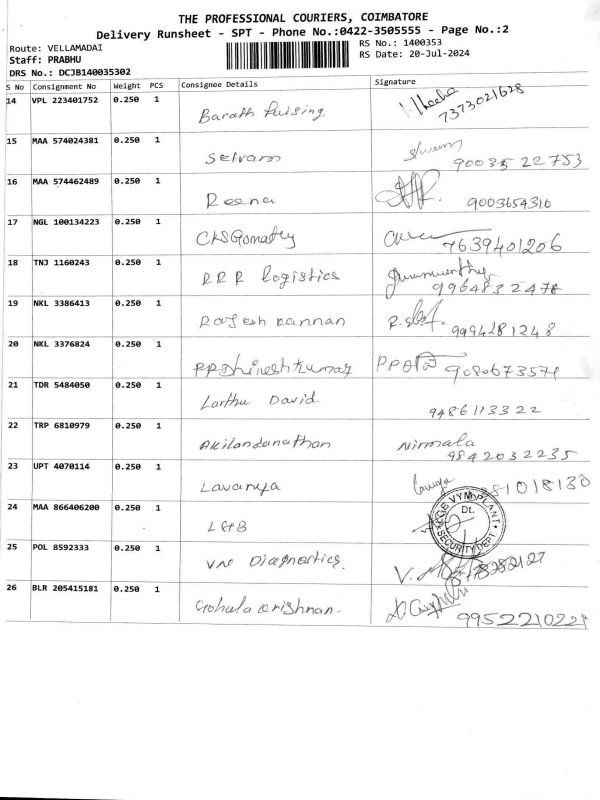 THE PROFESSIONAL COURIERS, COIMBATORE
Delivery Runsheet - SPT - Phone No.:0422-3505555 - Page No.:2
Route: VELLAMADAI
RS No.: 1400353
Staff: PRABHU
RS Date: 20-Jul-2024
DRS No.: DCJB140035302
S No Consignment No Weight PCS Consignee Details Signature
14 VPL 223401752 0.250 1 Barath 7373021628
15 MAA 574024381 0.250 1 Selvam 9003522753
16 MAA 574462489 0.250 1 Reena 9003654310
17 NGL 100134223 0.250 1 CKSGomathy 7639401206
18 TNJ 1160243 0.250 1 RRR logistics 9964832478
19 NKL 3386413 0.250 1 Rajesh kannan 9994281248
20 NKL 3376824 0.250 1 PPDhineshkumar 9080673571
21 TDR 5484050 0.250 1 Larthu David 9486113322
22 TRP 6810979 0.250 1 Akilandanathan Nirmala
9842032235
23 UPT 4070114 0.250 1 Lavanya 1018130
24 MAA 866406200 0.250 1 L&B
VYM PLANT
Dt.
SECURITY DEPT
25 POL 8592333 0.250 1 VN Diagnostics
26 BLR 205415181 0.250 1 Gokula krishnan. 9952210229